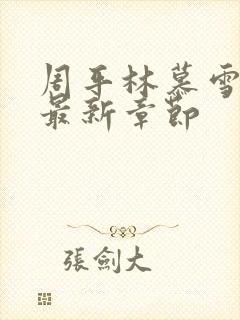 周平林慕雪
最新章節
張劍大